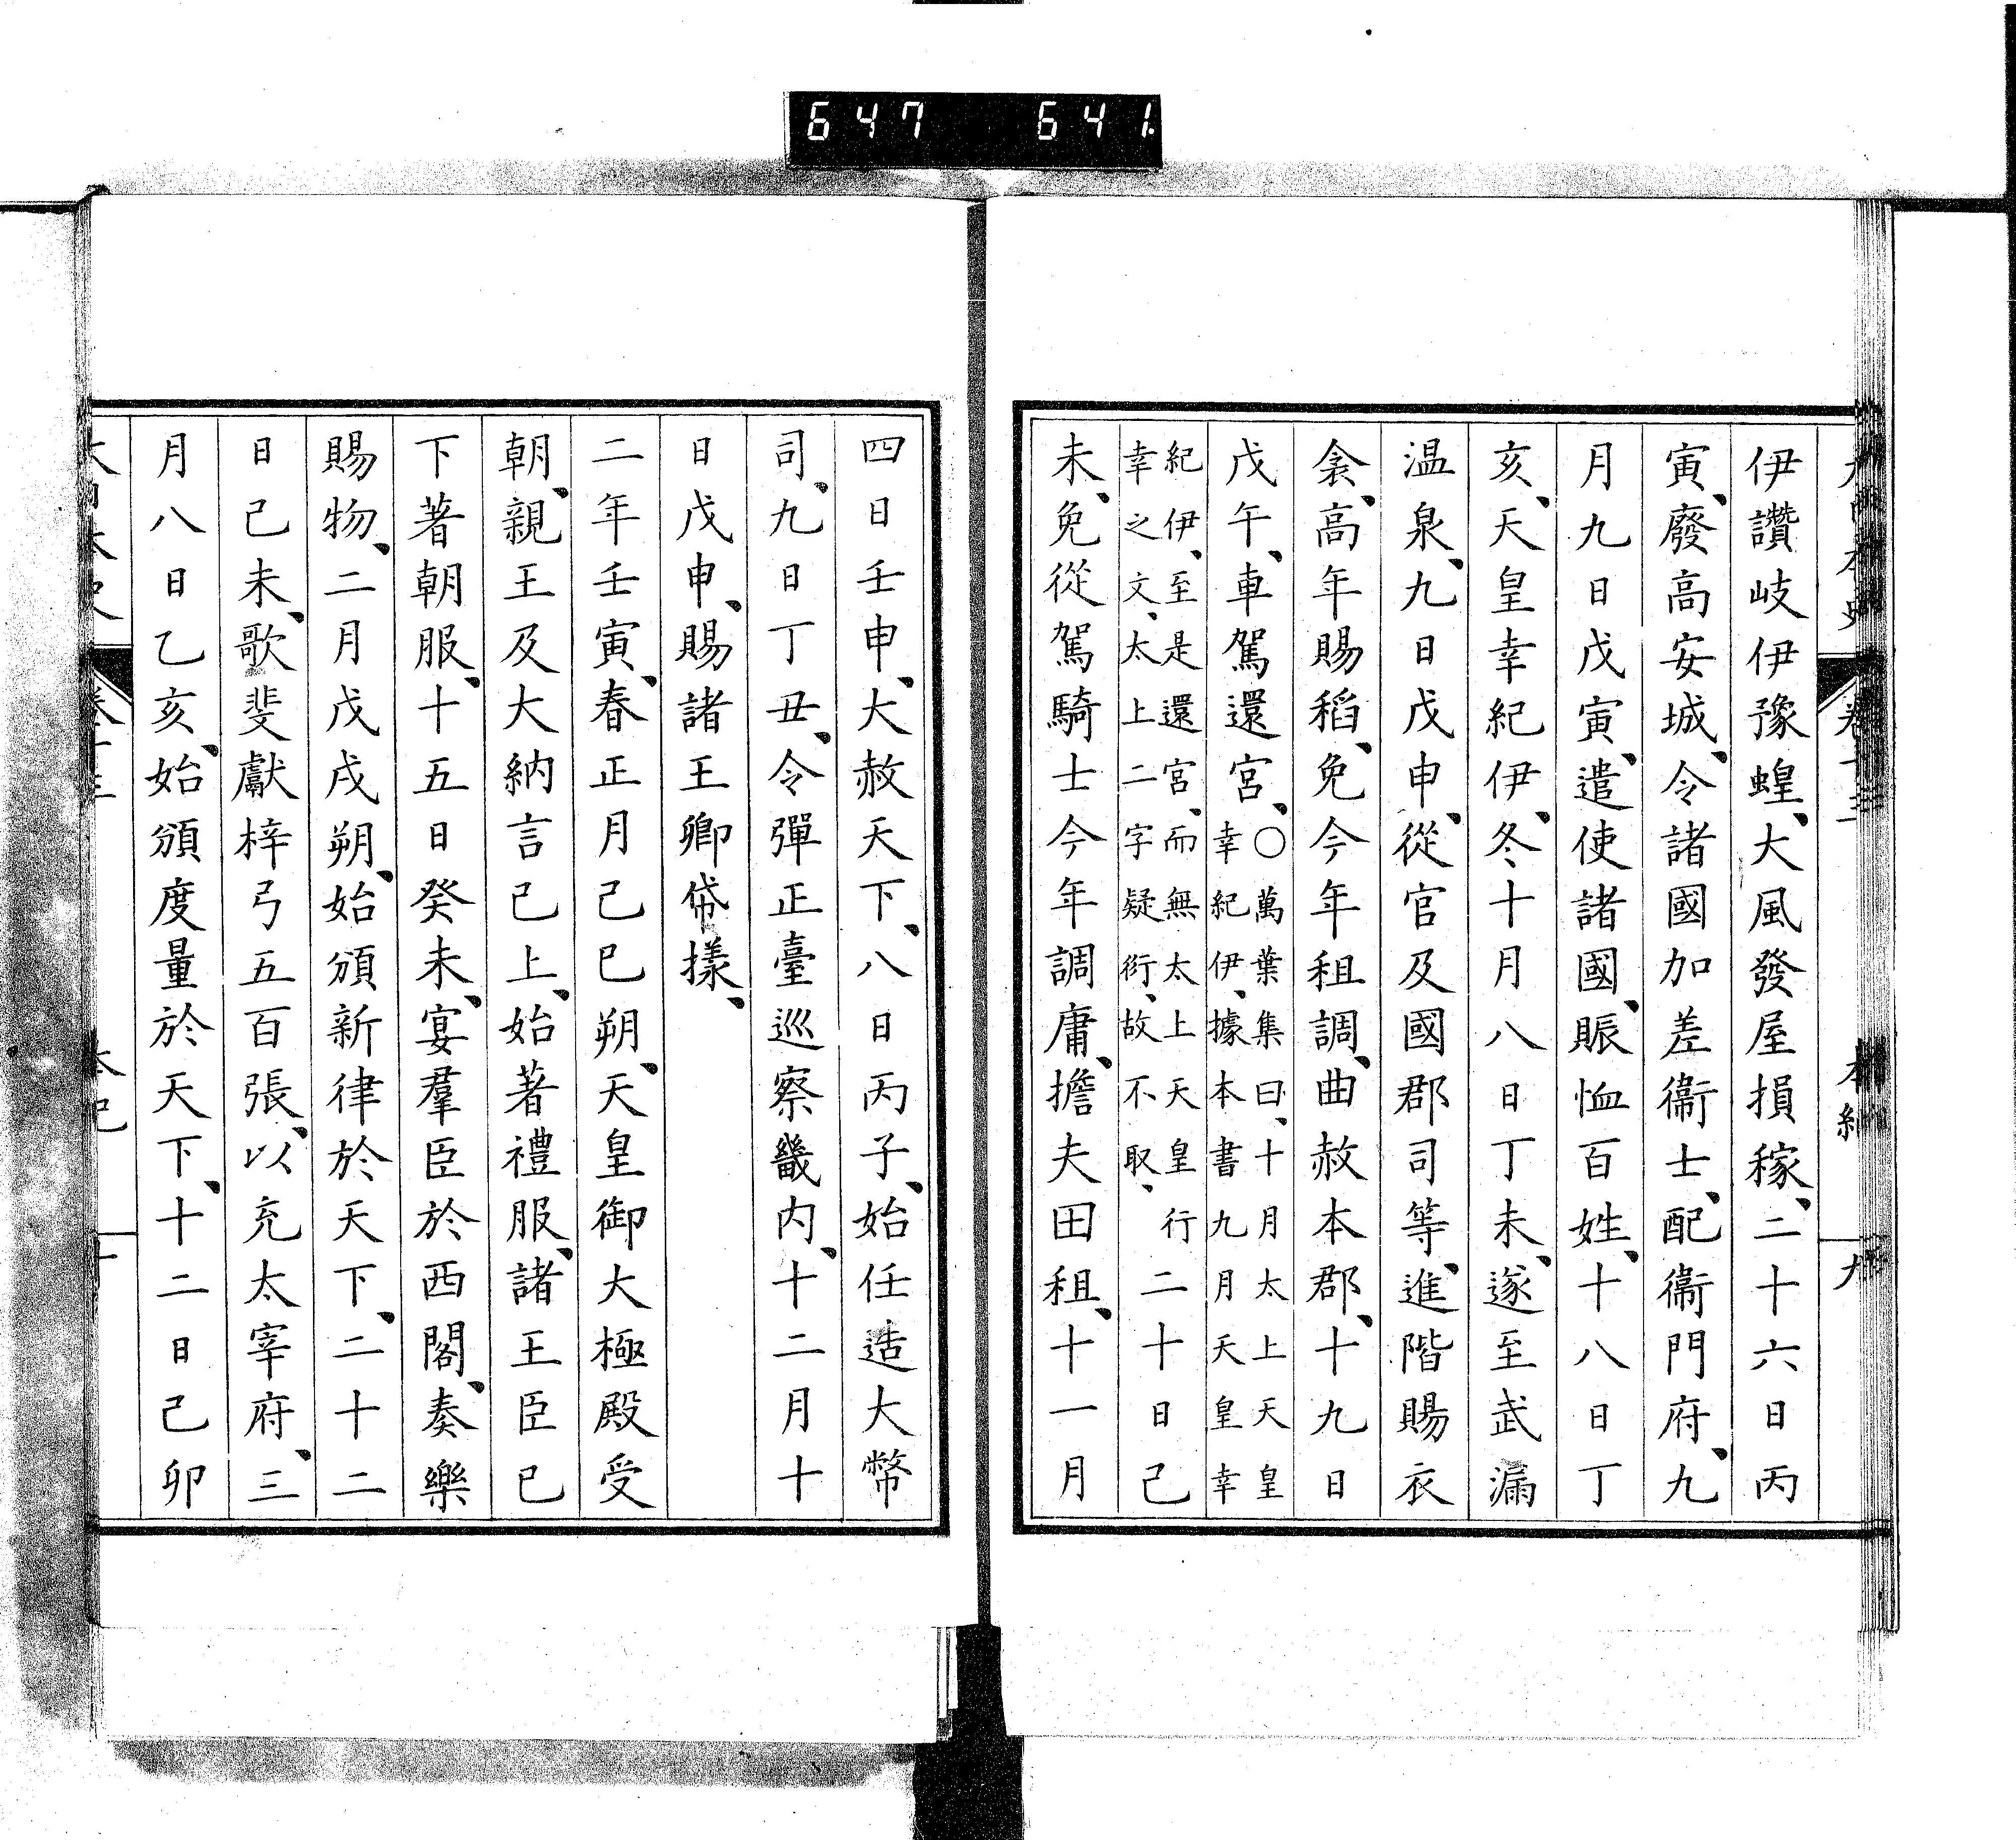 647 641.
大日本史 卷十三 本紀 九
伊讚岐伊豫蝗、大風發屋損稼、二十六日丙
寅、廢高安城、令諸國加差衞士、配衞門府、九
月九日戊寅、遣使諸國、賑恤百姓、十八日丁
亥、天皇幸紀伊、冬十月八日丁未、遂至武漏
温泉、九日戊申、從官及國郡司等、進階賜衣
衾、高年賜稻、免今年租調、曲赦本郡、十九日
戊午、車駕還宮、○萬葉集曰、十月太上天皇幸紀伊、據本書九月天皇幸
紀伊、至是還宮、而無太上天皇行幸之文、太上二字疑衍、故不取、二十日己
未、免從駕騎士今年調庸、擔夫田租、十一月
四日壬申、大赦天下、八日丙子、始任造大幣
司、九日丁丑、令彈正臺巡察畿内、十二月十
日戊申、賜諸王卿帒樣、
二年壬寅、春正月己巳朔、天皇御大極殿受
朝、親王及大納言已上、始著禮服、諸王臣已
下著朝服、十五日癸未、宴羣臣於西閣、奏樂
賜物、二月戊戌朔、始頒新律於天下、二十二
日己未、歌斐獻梓弓五百張、以充太宰府、三
月八日乙亥、始頒度量於天下、十二日己卯
大日本史 卷十三 本紀 十